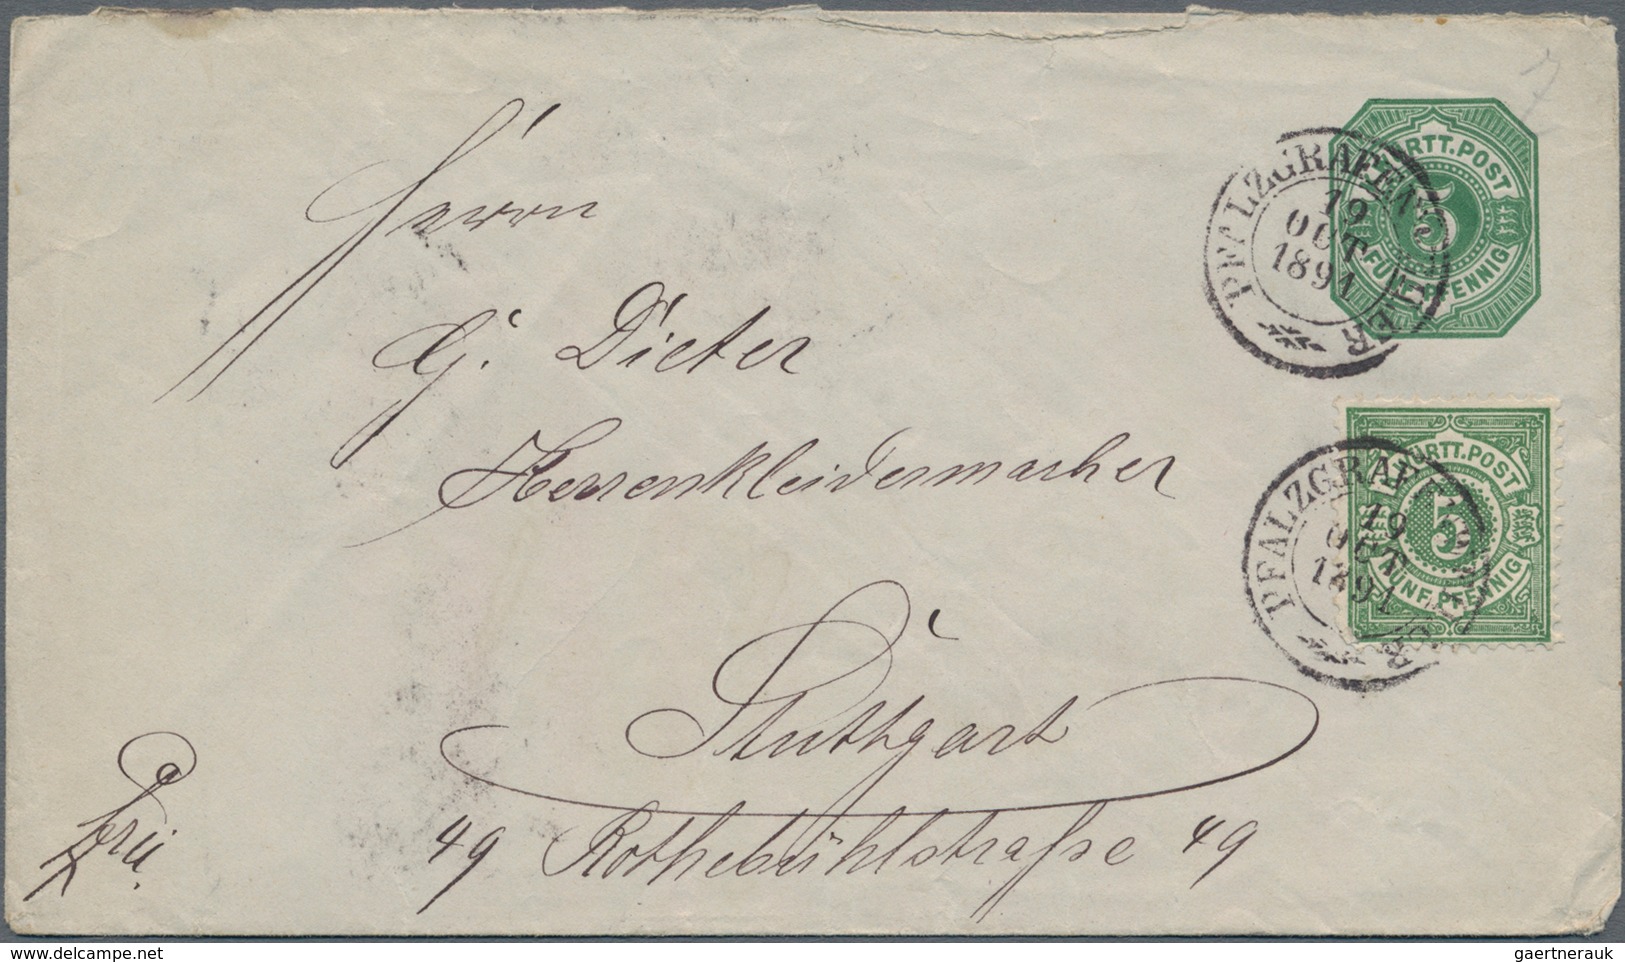 Herrn
G. Dieter
Herrenkleidermacher
Stuttgart
49 Rothebühlstraße 49
frei.
WÜRTT. POST
5
FÜNF PFENNIG
PFALZGRAFENWEILER
19
OCT
1891
WÜRTT. POST
5
FÜNF PFENNIG
PFALZGRAFENWEILER
19
OCT
1891
gaertnerauk